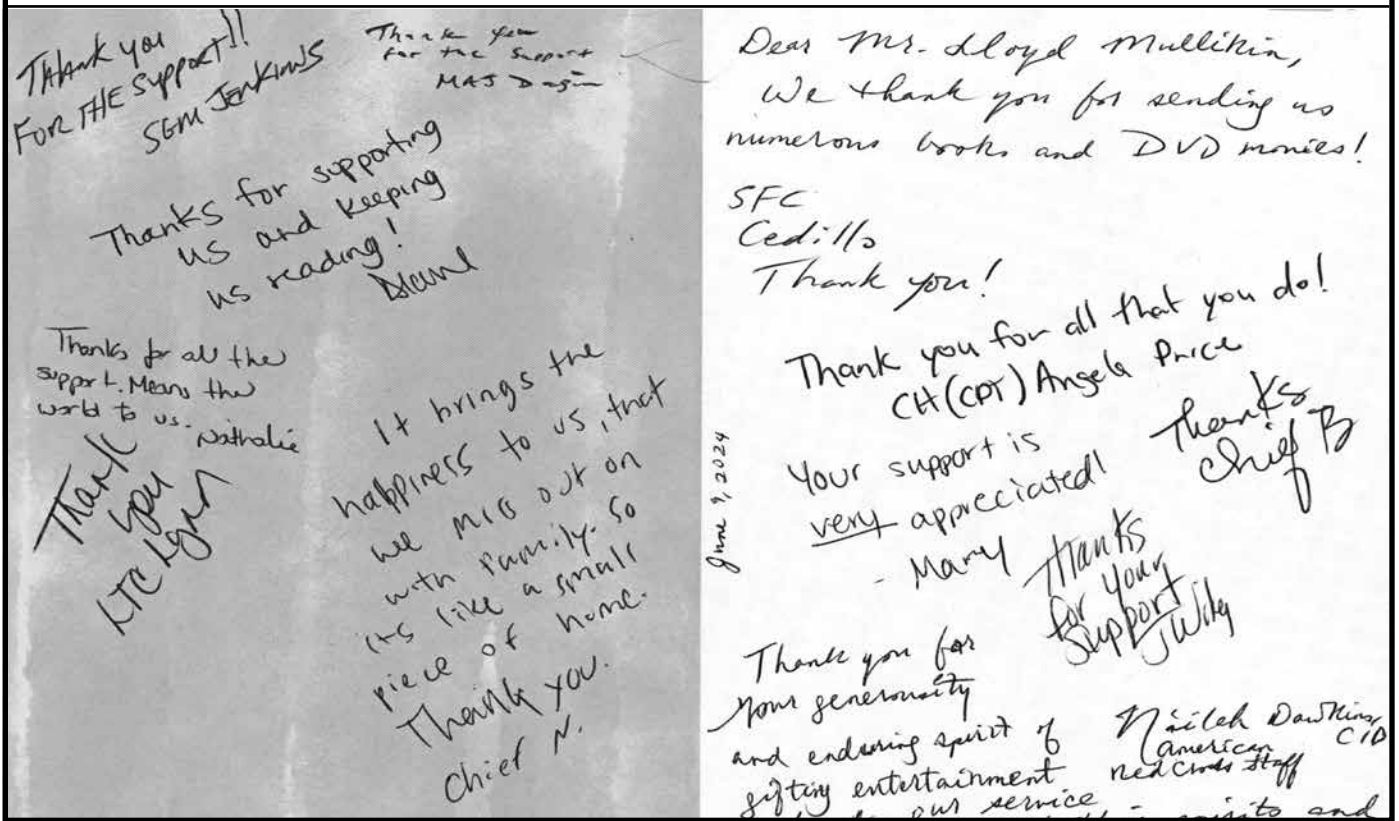 Thank you
FOR THE Support!!
SGM Jenkins
Thank you
for the support
MAJ
Thanks for supporting
us and keeping
us reading!
Thanks for all the
support. Means the
world to us. Nathalie
Thank
you
LTC
It brings the
happiness to us, that
we miss out on
with family. So
its like a small
piece of home.
Thank you.
Chief N.
Dear Mr. Lloyd Mullikin,
We thank you for sending us
numerous books and DVD movies!
SFC
Cedillo
Thank you!
Thank you for all that you do!
CH (CPT) Angela Price
Thanks
Chief B
Your support is
very appreciated!
- Mary
Thanks
for your
support
J Wiley
June 9, 2024
Thank you for
your generousity
and enduring spirit of
gifting entertainment
our service
spirits and
Dawkins,
CID
American
Red Cross Staff